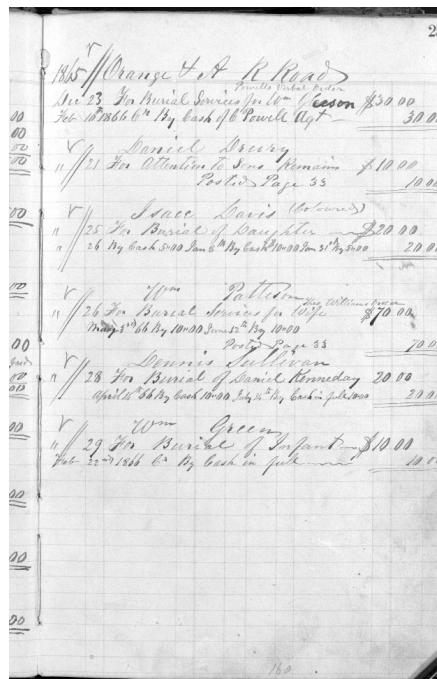 2
1865 // Orange & A R Road
Powells Verbal Order
Dec 23 For Burial Services for Wm Gleeson $30.00
Feb 10th 1866 Cr By Cash of C Powell Agt 30.00
// Daniel Drury
" 21 For Attention to Sons Remains $10.00
Posted Page 33 10.00
// Isacc Davis (Coloured)
" 25 For Burial of Daughter $20.00
" 26 By Cash 5.00 Jan 6th By Cash 10.00 Jan 31st By 5.00 20.00
// Wm Patteson
Williams
" 26 For Burial Services for Wife $70.00
3rd 66 By 10.00 June 12th By 10.00
Posted Page 33 70.00
// Dennis Sullivan
" 28 For Burial of Daniel Kenneday 20.00
April 16th 66 By Cash 10.00 July 14th By Cash in full 10.00 20.00
// Wm Green
" 29 For Burial of Infant $10.00
Feb 22nd 1866 Cr By Cash in full 10.00
160